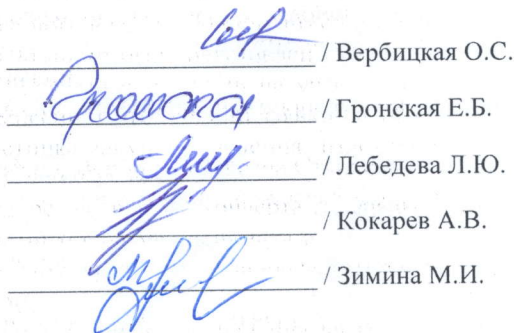 / Вербицкая О.С.
/ Гронская Е.Б.
/ Лебедева Л.Ю.
/ Кокарев А.В.
/ Зимина М.И.